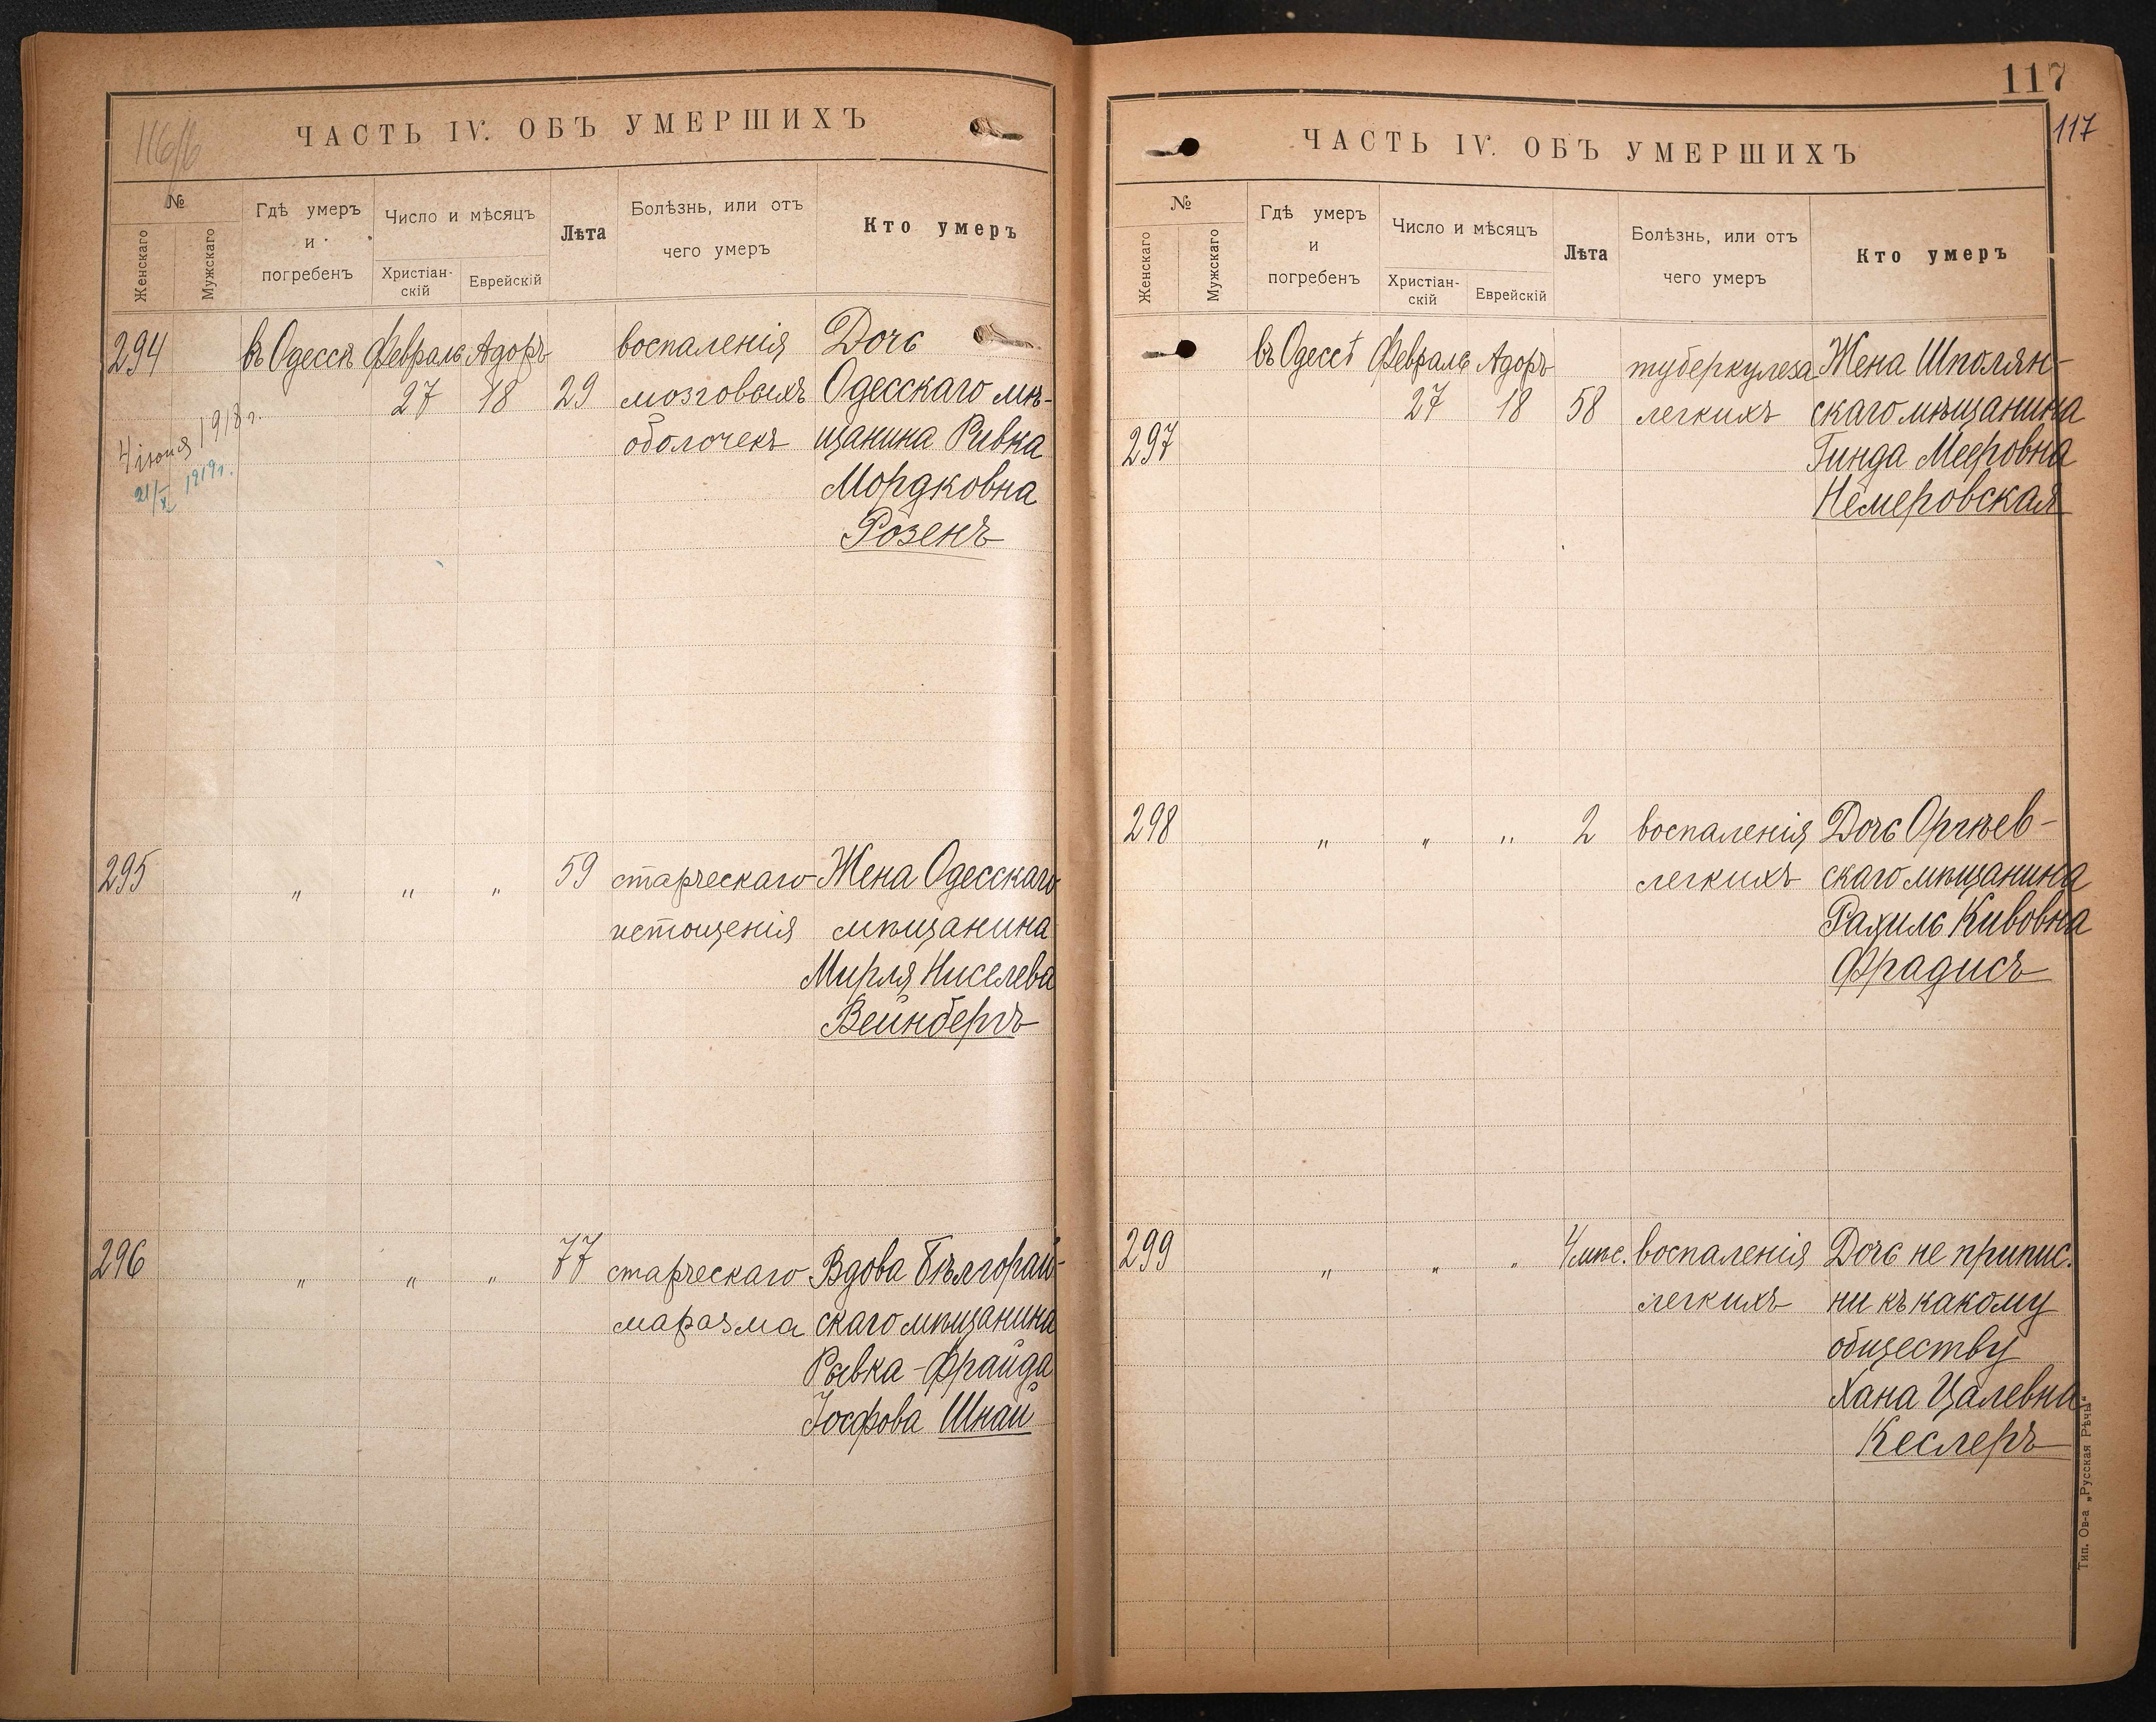 116/б
ЧАСТЬ IV. ОБЪ УМЕРШИХЪ
№
Женскаго
Мужскаго
Гдѣ умеръ
и
погребенъ
Число и мѣсяцъ
Христіан-
скій
Еврейскій
Лѣта
Болѣзнь, или отъ
чего умеръ
Кто умеръ
294 въ Одессѣ Февраль Адоръ воспаленія Дочь
27 18 29 мозговыхъ Одесскаго мѣ-
оболочекъ щанина Ривка
Мордковна
Розенъ
4 іюня 1918 г.
21/X 1919 г.
295 " " " 59 старческаго Жена Одесскаго
истощенія мѣщанина
Мирля Ниселева
Вейнбергъ
296 " " " 77 старческаго Вдова Бѣлгорай-
маразма скаго мѣщанина
Рывка-Фрайда
Іосфова Шнай
117
117
ЧАСТЬ IV. ОБЪ УМЕРШИХЪ
№
Женскаго
Мужскаго
Гдѣ умеръ
и
погребенъ
Число и мѣсяцъ
Христіан-
скій
Еврейскій
Лѣта
Болѣзнь, или отъ
чего умеръ
Кто умеръ
въ Одессѣ Февраль Адоръ туберкулеза Жена Шполян-
27 18 58 легкихъ скаго мѣщанина
297 Гинда Мееровна
Немеровская
298 " " " 2 воспаленія Дочь Оргѣев-
легкихъ скаго мѣщанина
Рахиль Кивовна
Фрадисъ
299 " " " 4 мѣс. воспаленія Дочь не припис.
легкихъ ни къ какому
обществу
Хана Цалевна
Кеслеръ
Тип. Ов-а „Русская Рѣчь"